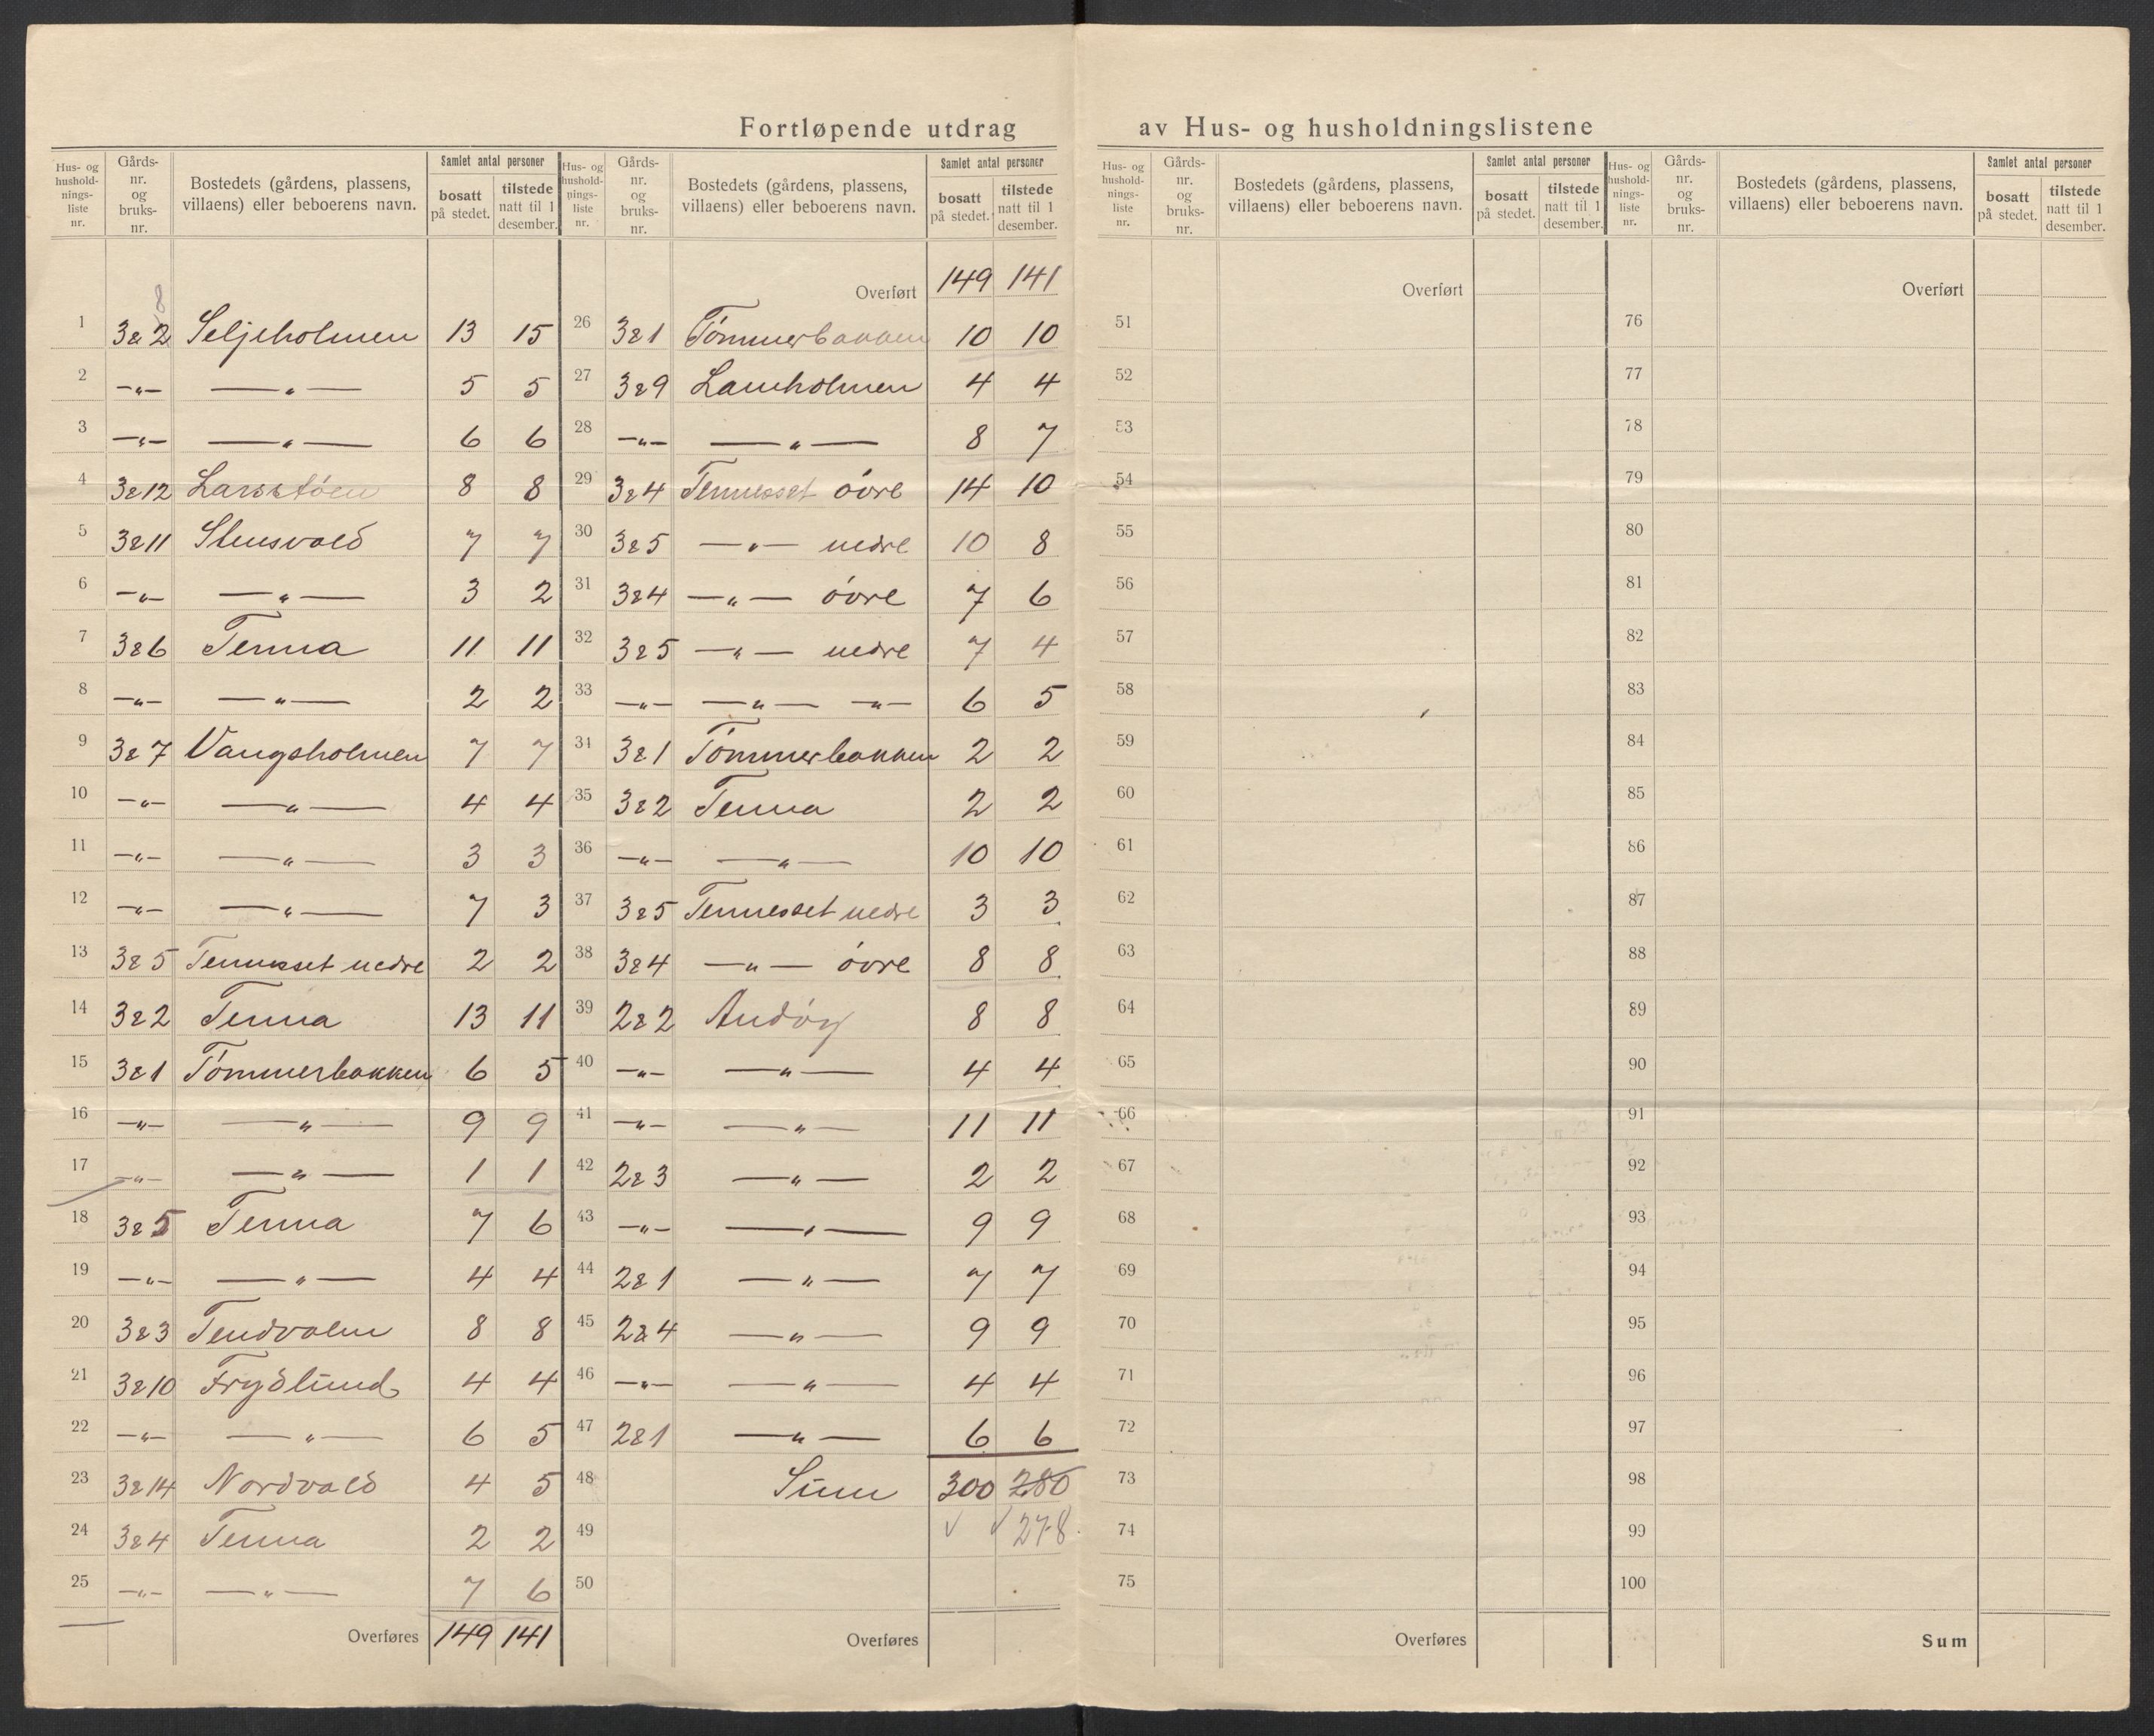 Fortløpende utdrag av Hus- og husholdningslistene
Hus- og husholdnings-liste nr. | Gårds-nr. og bruks-nr. | Bostedets (gårdens, plassens, villaens) eller beboerens navn. | Samlet antal personer: bosatt på stedet. | tilstede natt til 1 desember.
1 3&2 8 Seljeholmen 13 15
2 —„— —„— 5 5
3 —„— —„— 6 6
4 3&12 Larsstøen 8 8
5 3&11 Stensvold 7 7
6 —„— —„— 3 2
7 3&6 Tenna 11 11
8 —„— —„— 2 2
9 3&7 Vangsholmen 7 7
10 —„— —„— 4 4
11 —„— —„— 3 3
12 —„— —„— 7 3
13 3&5 Tennesset nedre 2 2
14 3&2 Tenna 13 11
15 3&1 Tömmerbakken 6 5
16 —„— —„— 9 9
17 —„— —„— 1 1
18 3&5 Tenna 7 6
19 —„— —„— 4 4
20 3&3 Tendvalen 8 8
21 3&10 Frydlund 4 4
22 —„— —„— 6 5
23 3&14 Nordvold 4 5
24 3&4 Tenna 2 2
25 —„— —„— 7 6
Overføres 149 141
Hus- og husholdnings-liste nr. | Gårds-nr. og bruks-nr. | Bostedets (gårdens, plassens, villaens) eller beboerens navn. | Samlet antal personer: bosatt på stedet. | tilstede natt til 1 desember.
Overført 149 141
26 3&1 Tömmerbakken 10 10
27 3&9 Lamholmen 4 4
28 —„— —„— 8 7
29 3&4 Tennesset óvre 14 10
30 3&5 —„— nedre 10 8
31 3&4 —„— óvre 7 6
32 3&5 —„— nedre 7 4
33 —„— —„— —„— 6 5
34 3&1 Tömmerbakken 2 2
35 3&2 Tenna 2 2
36 —„— —„— 10 10
37 3&5 Tennesset nedre 3 3
38 3&4 —„— óvre 8 8
39 2&2 Andóy 8 8
40 —„— —„— 4 4
41 —„— —„— 11 11
42 2&3 —„— 2 2
43 —„— —„— 9 9
44 2&1 —„— 7 7
45 2&4 —„— 9 9
46 —„— —„— 4 4
47 2&1 —„— 6 6
48 Sum 300 280
49 √ √ 278
50
Overføres
Hus- og husholdnings-liste nr. | Gårds-nr. og bruks-nr. | Bostedets (gårdens, plassens, villaens) eller beboerens navn. | Samlet antal personer: bosatt på stedet. | tilstede natt til 1 desember.
Overført
51
52
53
54
55
56
57
58
59
60
61
62
63
64
65
66
67
68
69
70
71
72
73
74
75
Overføres
Hus- og husholdnings-liste nr. | Gårds-nr. og bruks-nr. | Bostedets (gårdens, plassens, villaens) eller beboerens navn. | Samlet antal personer: bosatt på stedet. | tilstede natt til 1 desember.
Overført
76
77
78
79
80
81
82
83
84
85
86
87
88
89
90
91
92
93
94
95
96
97
98
99
100
Sum